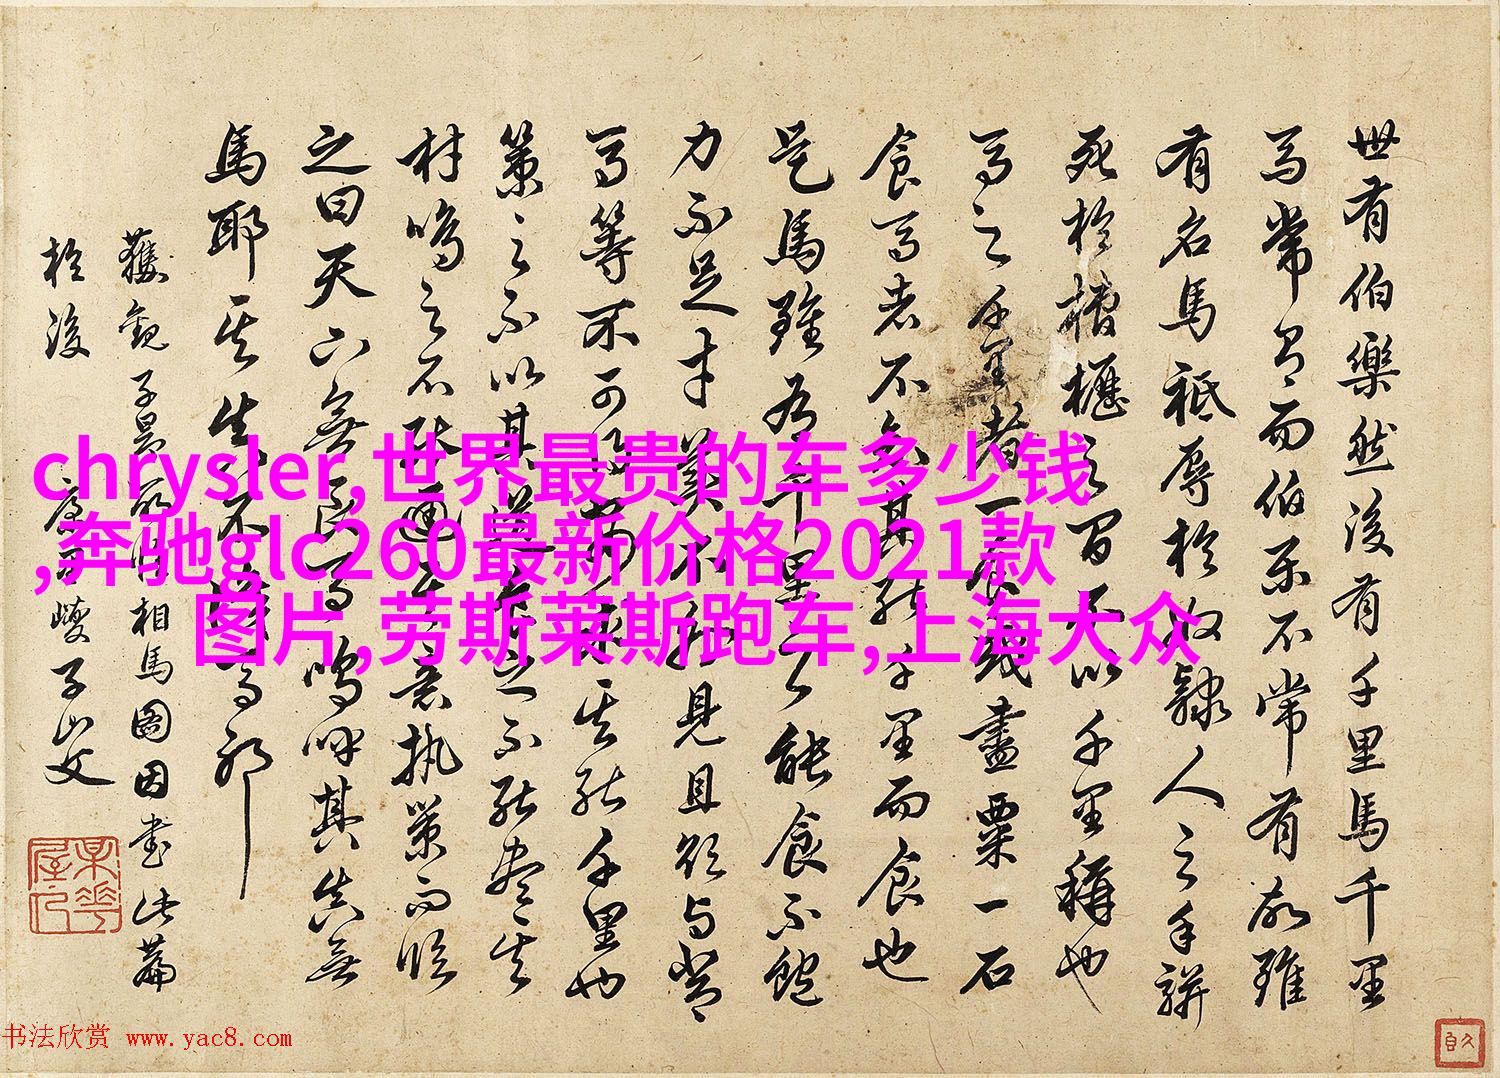 世有伯樂然後有千里馬千里
馬常有而伯樂不常有故雖
有名馬祗辱於奴隸人之手駢
死於槽櫪之間不以千里稱也
馬之千里者一食或盡粟一石
食馬者不知其能千里而食也
是馬雖有千里之能食不飽
力不足才美不外見且欲與常
馬等不可得安求其能千里也
策之不以其道食之不能盡其
材鳴之不能通其意執策而臨
之曰天下無良馬嗚呼其真無
馬耶其真不識馬耶
獲觀子昂所作相馬圖因書此篇
於後 康里巎子山父
chrysler,世界最贵的车多少钱
,奔驰glc260最新价格2021款
图片,劳斯莱斯跑车,上海大众
书法欣赏 www.yac8.com